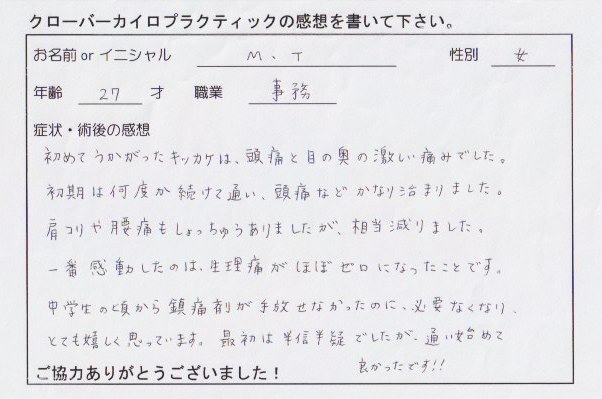 クローバーカイロプラクティックの感想を書いて下さい。
お名前 or イニシャル M、T 性別 女
年齢 27 才 職業 事務
症状・術後の感想
初めてうかがったキッカケは、頭痛と目の奥の激しい痛みでした。
初期は何度か続けて通い、頭痛などかなり治まりました。
肩コリや腰痛もしょっちゅうありましたが、相当減りました。
一番感動したのは、生理痛がほぼゼロになったことです。
中学生の頃から鎮痛剤が手放せなかったのに、必要なくなり、
とても嬉しく思っています。最初は半信半疑でしたが、通い始めて
良かったです!!
ご協力ありがとうございました！